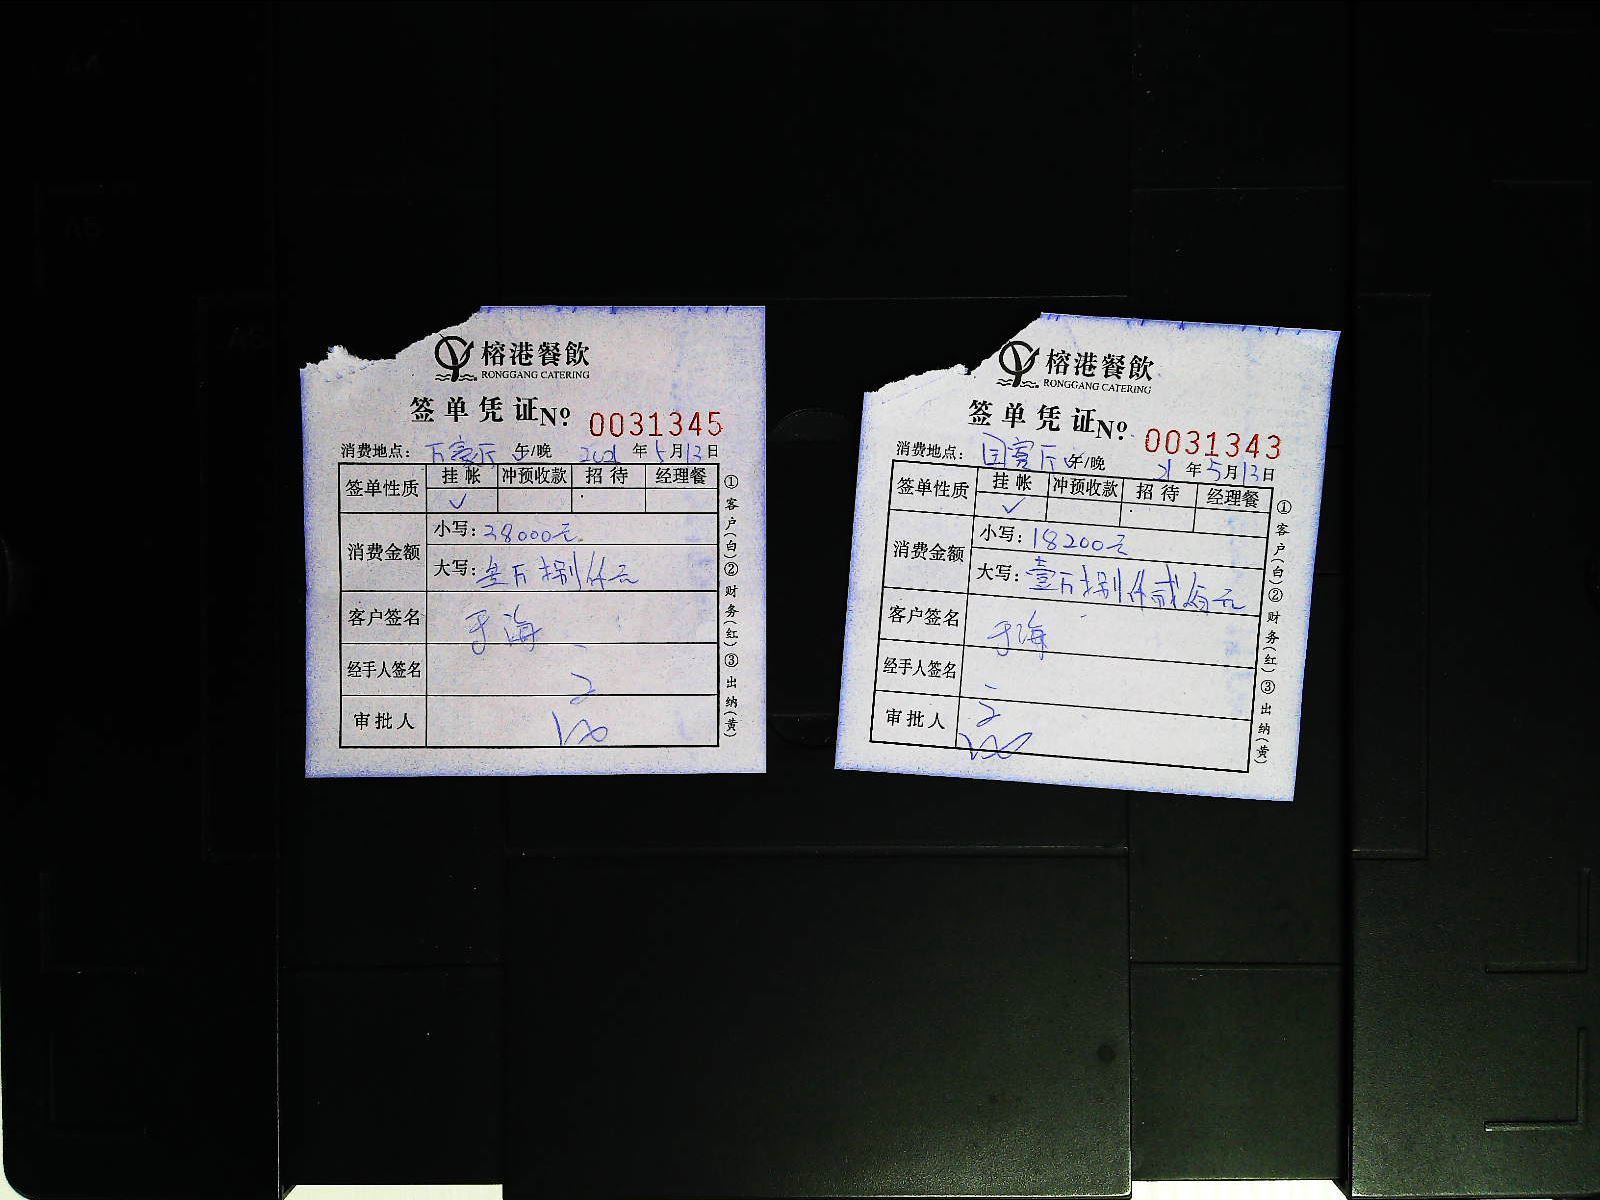 榕港餐飲
RONGGANG CATERING
签单凭证 № 0031345
消费地点： 万豪厅 午/晚 2021 年 5 月 13 日
签单性质 挂帐 冲预收款 招待 经理餐
✓
消费金额 小写：28000元
大写：壹万捌仟元
客户签名 于海
经手人签名
审批人
①客户(白)②财务(红)③出纳(黄)
榕港餐飲
RONGGANG CATERING
签单凭证 № 0031343
消费地点： 国宴厅 午/晚 21 年 5 月 13 日
签单性质 挂帐 冲预收款 招待 经理餐
✓
消费金额 小写：18200元
大写：壹万捌仟贰佰元
客户签名 于海
经手人签名
审批人
①客户(白)②财务(红)③出纳(黄)